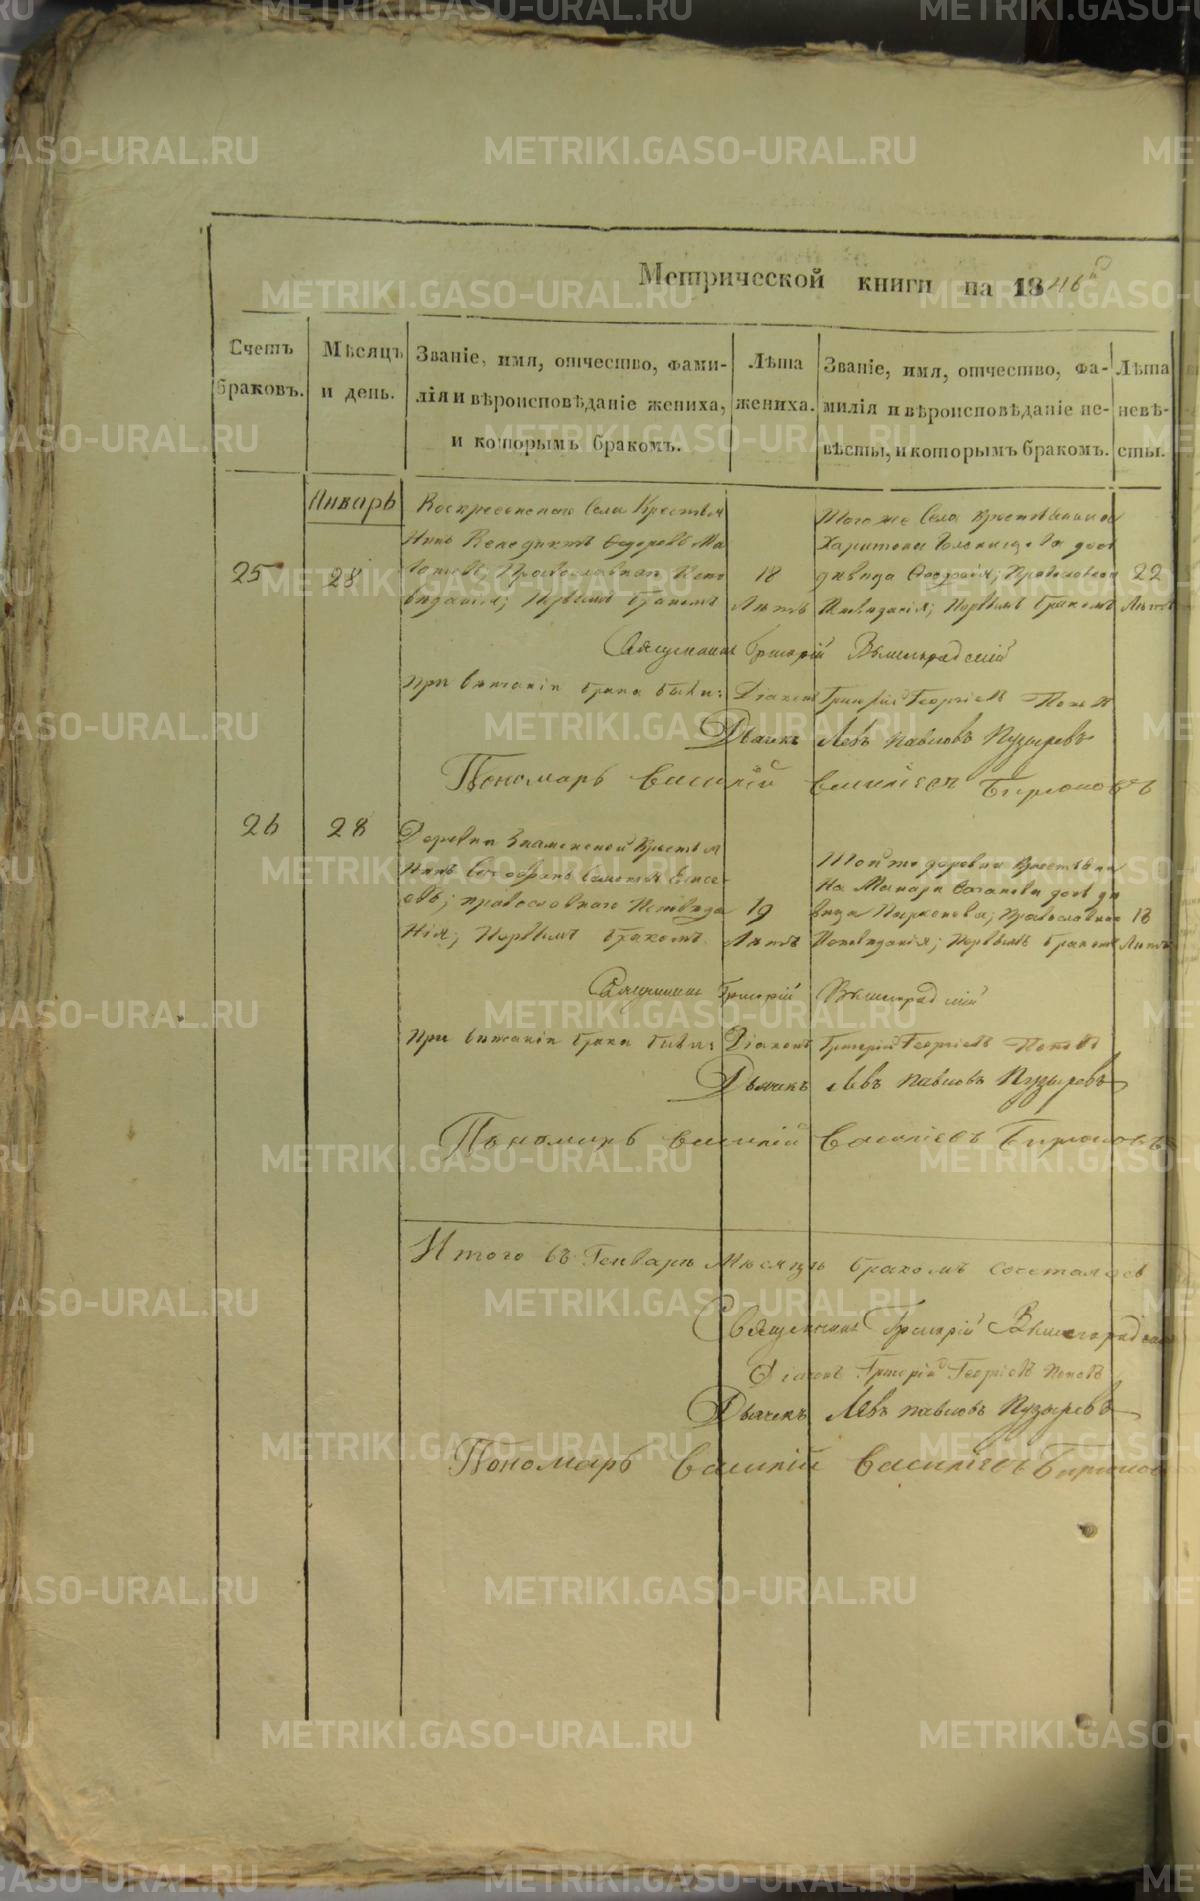 Метрической книги на 1846й
Счетъ браковъ.
Мѣсяцъ и день.
Званіе, имя, отчество, фами-
лія и вѣроисповѣданіе жениха,
и которымъ бракомъ.
Лѣта
жениха.
Званіе, имя, отчество, фа-
милія и вѣроисповѣданіе не-
вѣсты, и которымъ бракомъ.
Лѣта
невѣ-
сты.
Январь
25
28
Воскресенского Села Крестья
нинъ Венедиктъ Федоровъ
Православнаго Испо
веданія; Первымъ бракомъ
18
Лѣтъ
Того же Села Крестьянина
Харитона дос
девица Православнаго
Исповеданія; Первымъ бракомъ
22
Лѣтъ
Священникъ Григорій Вышеградскій
При венчаніи брака были: Діаконъ Григорій Георгіевъ Поповъ
Дьячекъ Левъ Павловъ Пузыревъ
Пономарь Василій Василіевъ Бирюковъ
26
28
Деревни Знаменской Крестья
нинъ
православнаго Исповеда
нія; Первымъ бракомъ
19
Лѣтъ
Той же деревни Крестьяни
на Макара
вица Православнаго
Исповеданія; Первымъ бракомъ
18
Лѣтъ
Священникъ Григорій Вышеградскій
При венчаніи брака были: Діаконъ Григорій Георгіевъ Поповъ
Дьячекъ Левъ Павловъ Пузыревъ
Пономарь Василій Василіевъ Бирюковъ
Итого въ Генварѣ Мѣсяцѣ бракомъ
Священникъ Григорій
Діаконъ Григорій Георгіевъ Поповъ
Дьячекъ Левъ Павловъ Пузыревъ
Пономарь Василій Василіевъ Бирюков
METRIKI.GASO-URAL.RU